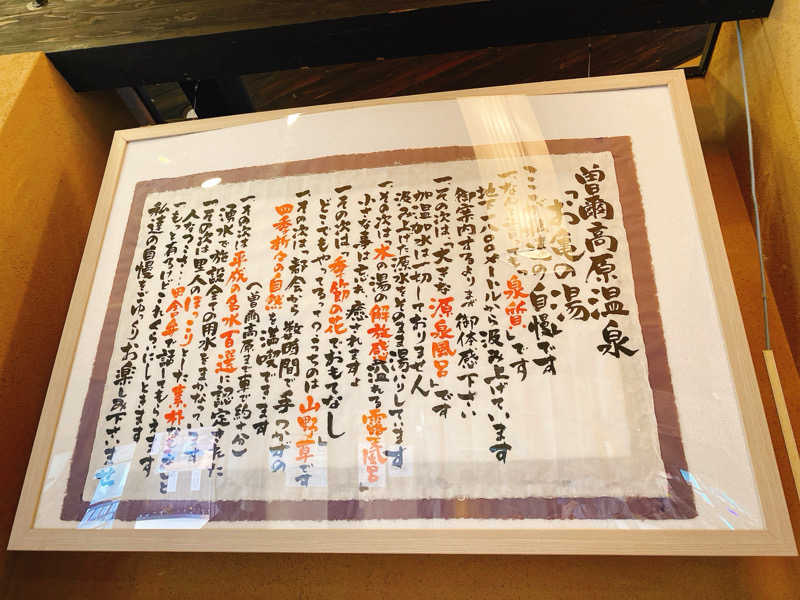 曽爾高原温泉
「お亀の湯」
ここが私達の自慢です
一、なんと言っても「泉質」です
地下一八〇〇メートルから汲み上げています
御案内するよりまず御体感下さい
一、その次は「大きな源泉風呂」です
加温加水は一切しておりません
汲み上げた源泉をそのまま湯入りしています
一、その次は「木の湯の解放感溢れる露天風呂」
小さな事は忘れ癒されますよ
一、その次は「季節の花でおもてなし」
どこでもやってるってうちのは山野草です
一、その次は「都会から数時間で手つかずの
四季折々の自然を満喫できます
(曽爾高原まで車で約十分)
一、その次は平成の名水百選に認定された
湧水で施設全ての用水をまかなっています
一、その次は里人のほっこりとした素朴な
人なつっこさ…田舎の弁で話してもらえます
一、もっと有るけどこれくらいにしときます
私達の自慢をごゆっくりお楽しみ下さいませ